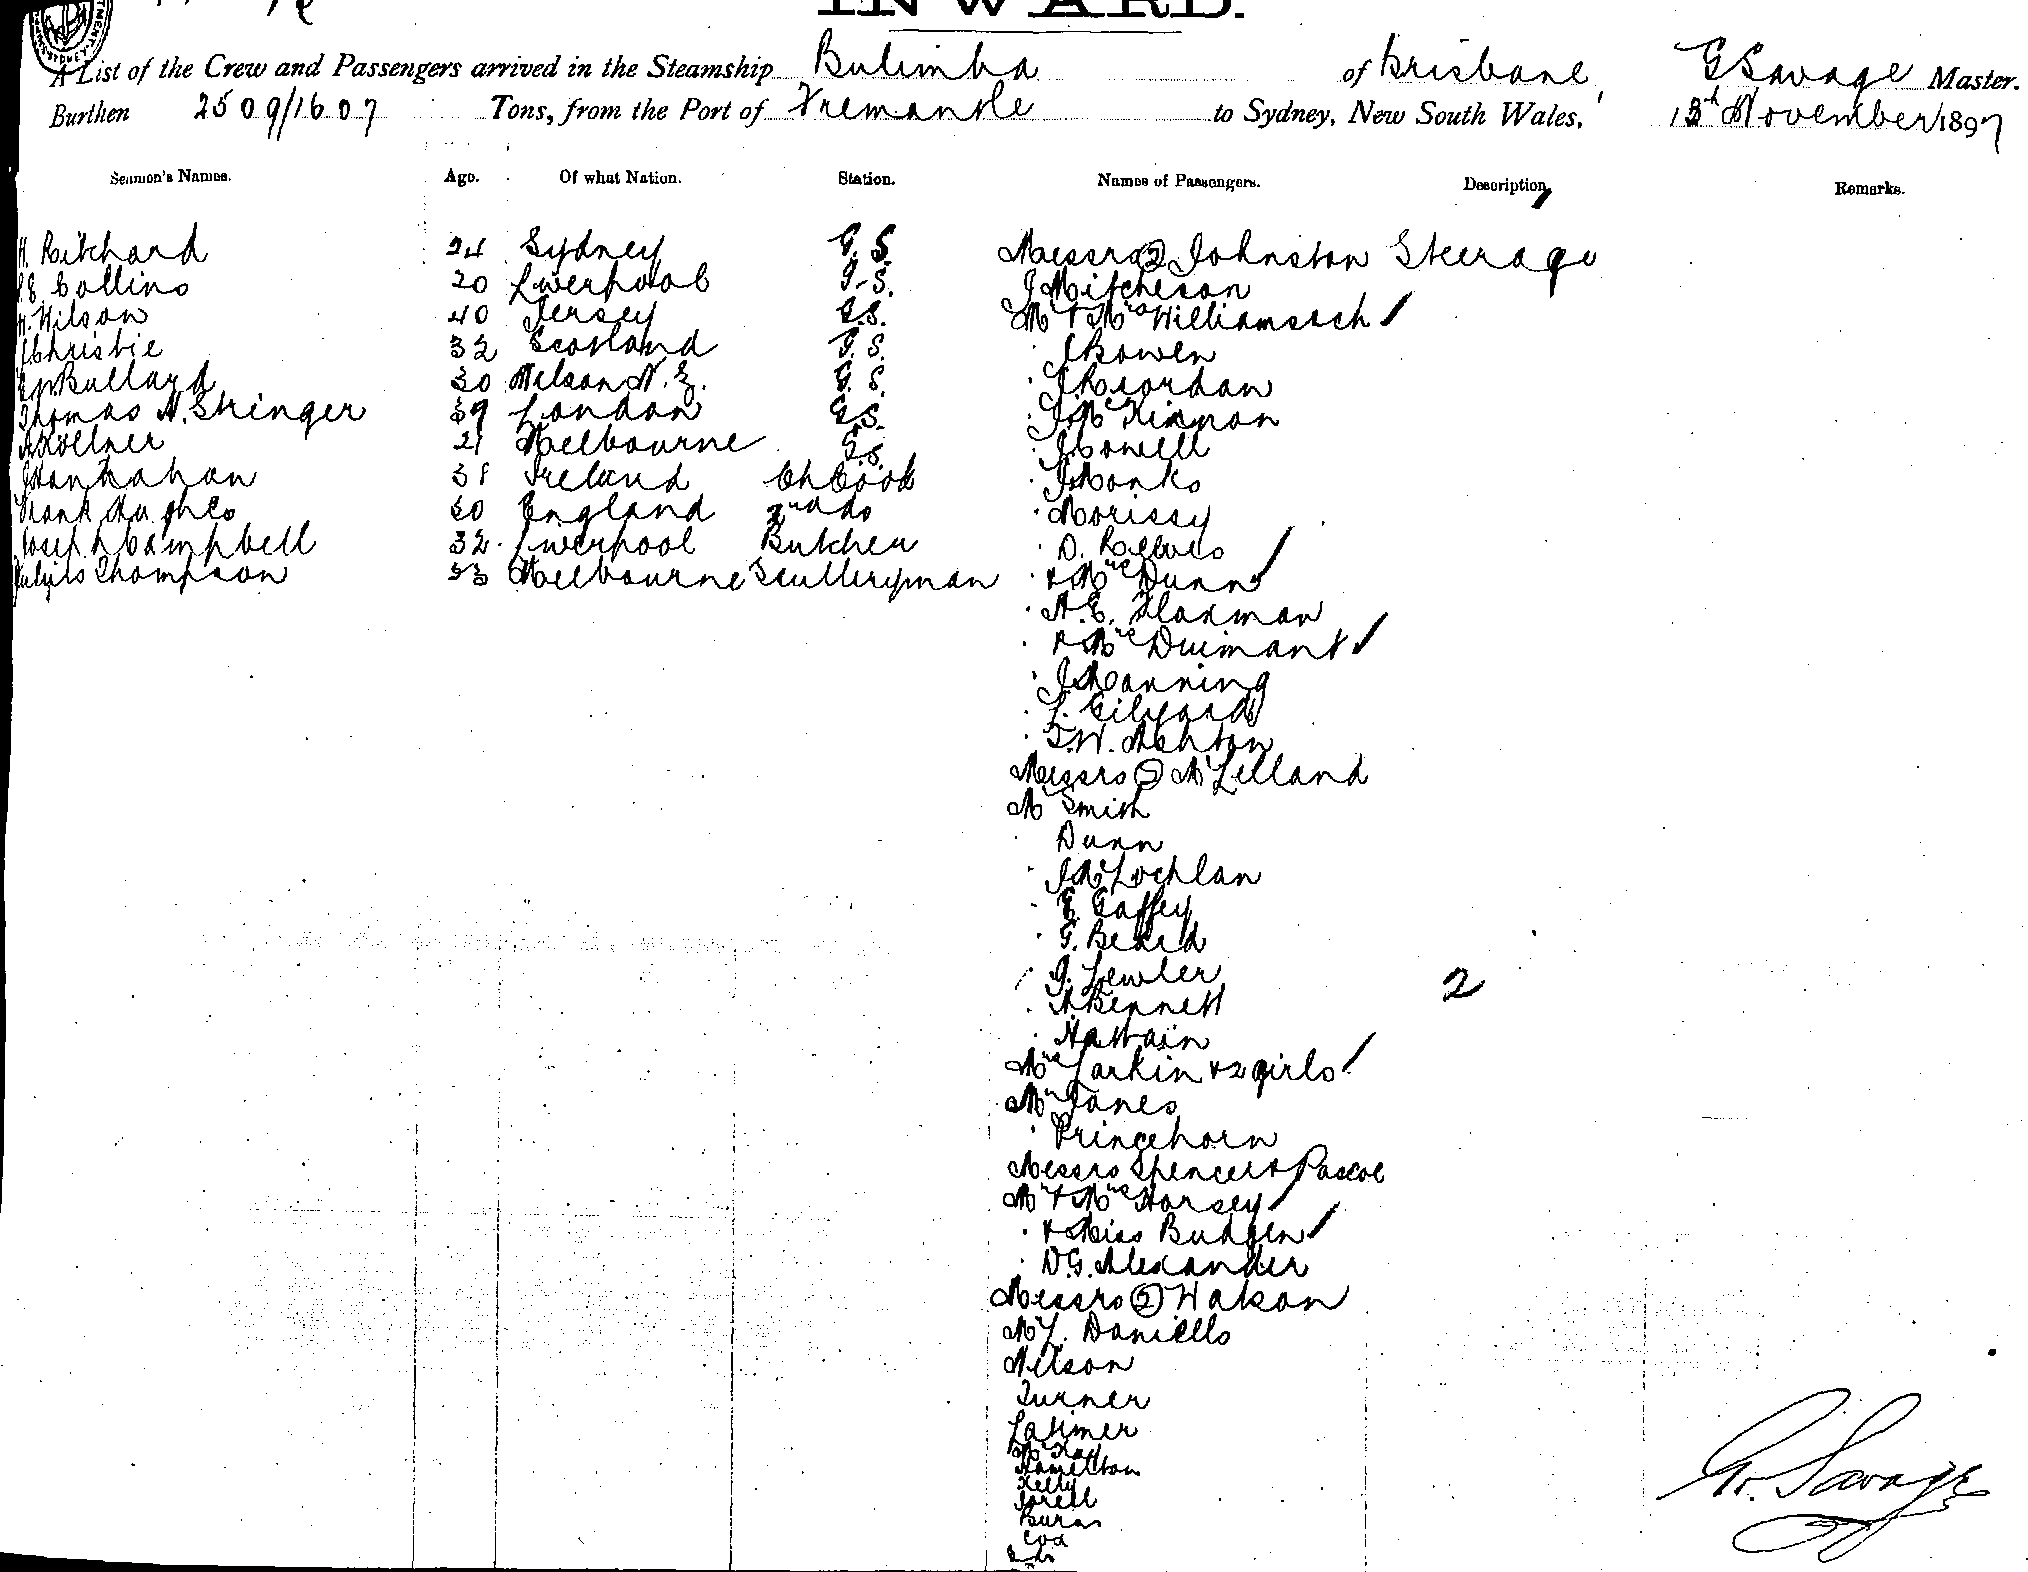 INWARD.
A List of the Crew and Passengers arrived in the Steamship Bulimba of Brisbane, G Savage Master.
Burthen 2509/1607 Tons, from the Port of Fremantle to Sydney, New South Wales, 13th November 1897
Seamen's Names. Age. Of what Nation. Station. Names of Passengers. Description, Remarks.
H. Pritchard 24 Sydney G.S. Messrs 2 Johnston Steerage
Collins 20 Liverpool G.S. J Mitcheson
H. Wilson 40 Jersey G.S. Mr & Mrs Williams & ch
J Christie 32 Scotland G.S. J Bowen
Bullard 30 Nelson N.Z. G.S. J Reordan
Thomas H. Stringer 39 London G.S. J McKinnon
A Kollner 21 Melbourne G.S. J Cowell
J Hanrahan 31 Ireland Ch Cook J Monks
Frank Hughes 30 England 2nd do Morissy
Joseph Campbell 32 Liverpool Butcher D. Reeves
Thompson 33 Melbourne Sculleryman & Mrs Dunn
A.E. Flaxman
& Mrs Duimant
J Manning
L. Gilyard
T.W. Ashton
Messrs 2 McLelland
Mr Smith
Dunn
J McLochlan
E. Gaffey
G. Beard
G. Lewler 2
A Bennett
Hattrain
Mrs Larkin & 2 girls
Mr Janes
Princehorn
Messrs Spencer & Pascoe
Mr & Mrs Horsey
& Miss Budgen
D.G. Alexander
Messrs 2 Watson
Mr L. Daniells
Nelson
Turner
Latimer
McKay
Hamelton
Kelly
Jorell
Burns
Cox
G. Savage